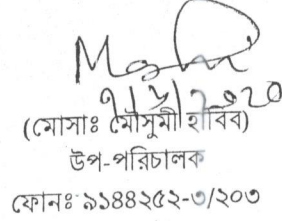 ৭/৮/২০২০
(মোসাঃ মৌসুমী হাবিব)
উপ-পরিচালক
ফোনঃ ৯১৪৪২৫২-৩/২০৩